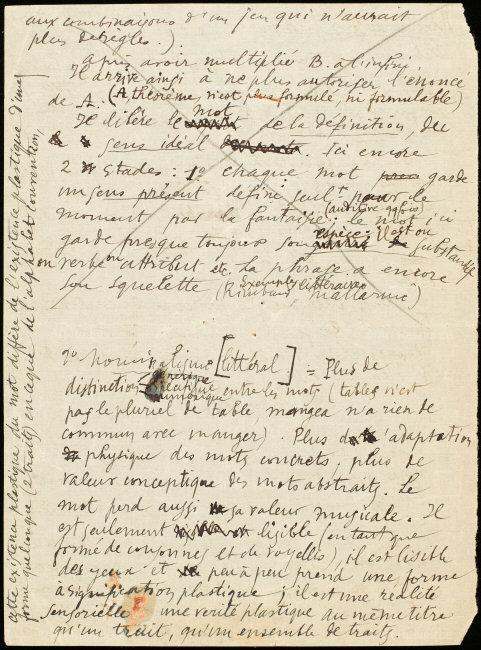 aux combinaisons d'un jeu qui n'aurait
plus de règles.)
après avoir multiplié B. a l'infini,
Il arrive ainsi à ne plus autoriser l'énoncé
de A. (A, théorème, n'est plus formule, ni formulable)
Il libère le mot de la définition, du
sens idéal. Ici encore
2 stades : 1º chaque mot garde
un sens présent défini seult pour le
moment par la fantaisie (auditive qqfois) ; le mot ici
garde presque toujours son espèce: il est ou substantif
ou verbe ou attribut etc. La phrase a encore
son squelette (Exemples littéraires
Rimbaud, Mallarmé)
2º Nominalisme [littéral] = Plus de
distinction générique
spécifique
numérique entre les mots (tables n'est
pas le pluriel de table, mangea n'a rien de
commun avec manger). Plus d'adaptation
physique des mots concrets, plus de
valeur conceptique des mots abstraits. Le
mot perd aussi sa valeur musicale. Il
est seulement lisible (en tant que
formé de consonnes et de voyelles), il est lisible
des yeux et peu à peu prend une forme
à signification plastique ; il est une réalité
sensorielle une vérité plastique au même titre
qu'un trait, qu'un ensemble de traits.
cette existence plastique du mot diffère de l'existence plastique d'une
forme quelconque (2 traits) en ce que de l'alphabet convention,